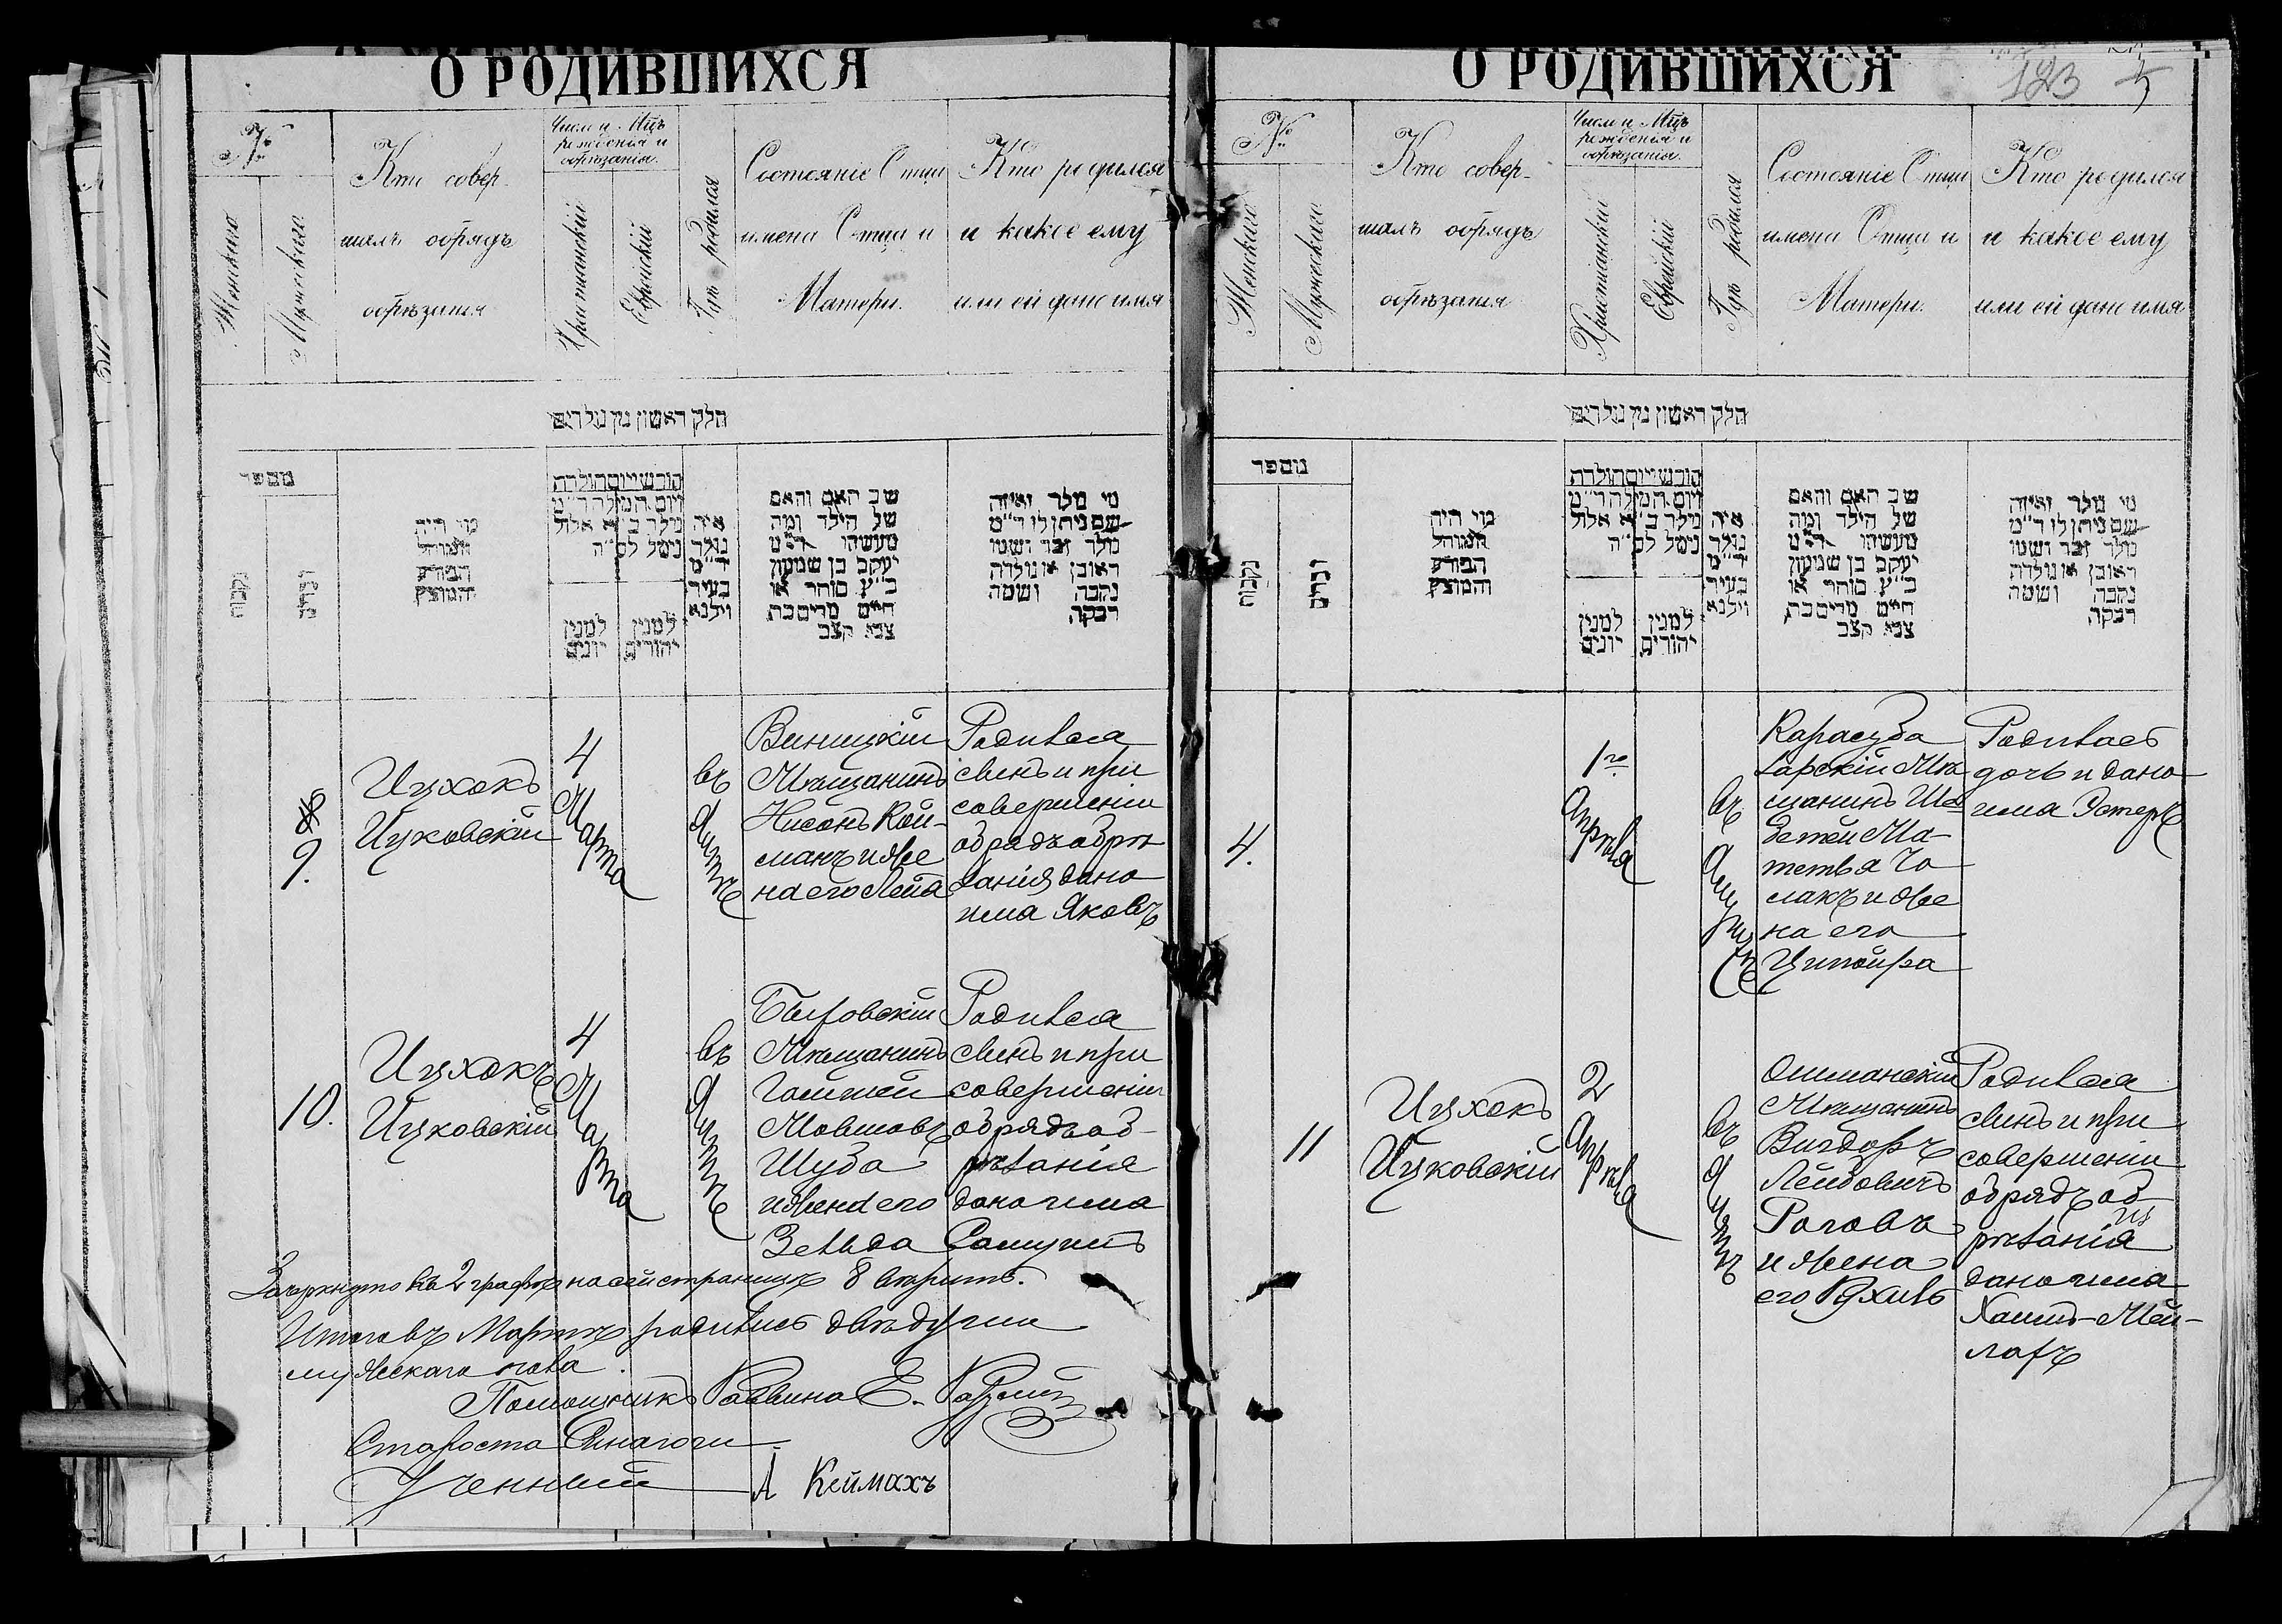 О РОДИВШИХСЯ
№
Женскаго
Мужескаго
Кто совер-
шалъ обрядъ
обрѣзанія
Число и Мцъ
рожденія и
обрѣзанія.
Христіанскій
Еврейскій
Гдѣ родился
Состояніе Отца
имена Отца и
Матери.
Кто родился
и какое ему
или ей дано имя
חלק ראשון מן נולדים
מספר
נקבות
זכרים
מי היה
המוהל
הפורע
והמוצץ
חודש ויום הולדת
ויום המילה ד״מ
נולד ב״א אלול
נימל לס״ה
למנין
יונים
למנין
יהודים
איה
נולד
ד״מ
בעיר
וילנא
שם האב והאם
של הילד ומה
מעשהו ד״מ
יעקב בן שמעון
כ״ץ סוחר או
חייט מרים בת
צבי קצב
מי נולד ואיזה
שם ניתן לו ד״מ
נולד זכר ושמו
ראובן או נולדה
נקבה ושמה
רבקה
9.
Ицхокъ
Ицковскій
4
Марта
въ
Ялтѣ
Виницкій
Мѣщанинъ
Нисонъ Кой-
манъ и же
на его Лейя
Родился
сынъ и при
совершеніи
обрядъ обрѣ
занія дано
имя Яковъ
10.
Ицхокъ
Ицковскій
4
Марта
въ
Ялтѣ
Мѣщанинъ
Мовшовъ
Шуба
и жена его
Зельда
Родился
сынъ и при
совершеніи
обрядъ об-
рѣзанія
дано имя
Самуилъ
Зачеркнуто въ 2 графѣ на сей страницѣ 8 вѣрить.
Итого въ Мартѣ родились двѣ души
мужескаго пола.
Помощникъ Раввина Е.
Староста Синагоги
Ученный А Кеймахъ
О РОДИВШИХСЯ
123
5
№
Женскаго
Мужескаго
Кто совер-
шалъ обрядъ
обрѣзанія
Число и Мцъ
рожденія и
обрѣзанія.
Христіанскій
Еврейскій
Гдѣ родился
Состояніе Отца
имена Отца и
Матери.
Кто родился
и какое ему
или ей дано имя
חלק ראשון מן נולדים
מספר
נקבות
זכרים
מי היה
המוהל
הפורע
והמוצץ
חודש ויום הולדת
ויום המילה ד״מ
נולד ב״א אלול
נימל לס״ה
למנין
יונים
למנין
יהודים
איה
נולד
ד״מ
בעיר
וילנא
שם האב והאם
של הילד ומה
מעשהו ד״מ
יעקב בן שמעון
כ״ץ סוחר או
חייט מרים בת
צבי קצב
מי נולד ואיזה
שם ניתן לו ד״מ
נולד זכר ושמו
ראובן או נולדה
נקבה ושמה
רבקה
4.
1го
Апрѣля
въ
Карасуба
зарскій Мѣ
щанинъ Ша
бетей Ма-
татья Чо
лакъ и же
на его
Ципойра
Родилась
дочь и дано
имя Эстеръ
11
Ицхокъ
Ицковскій
2
Апрѣля
въ
Ялтѣ
Ошманскій
Мѣщанинъ
Вигдоръ
Лейбовичъ
Роговъ
и жена
его Рухль
Родился
сынъ и при
совершеніи
обрядъ об-
рѣзанія
дано имя
Хаимъ-Мей-
лахъ